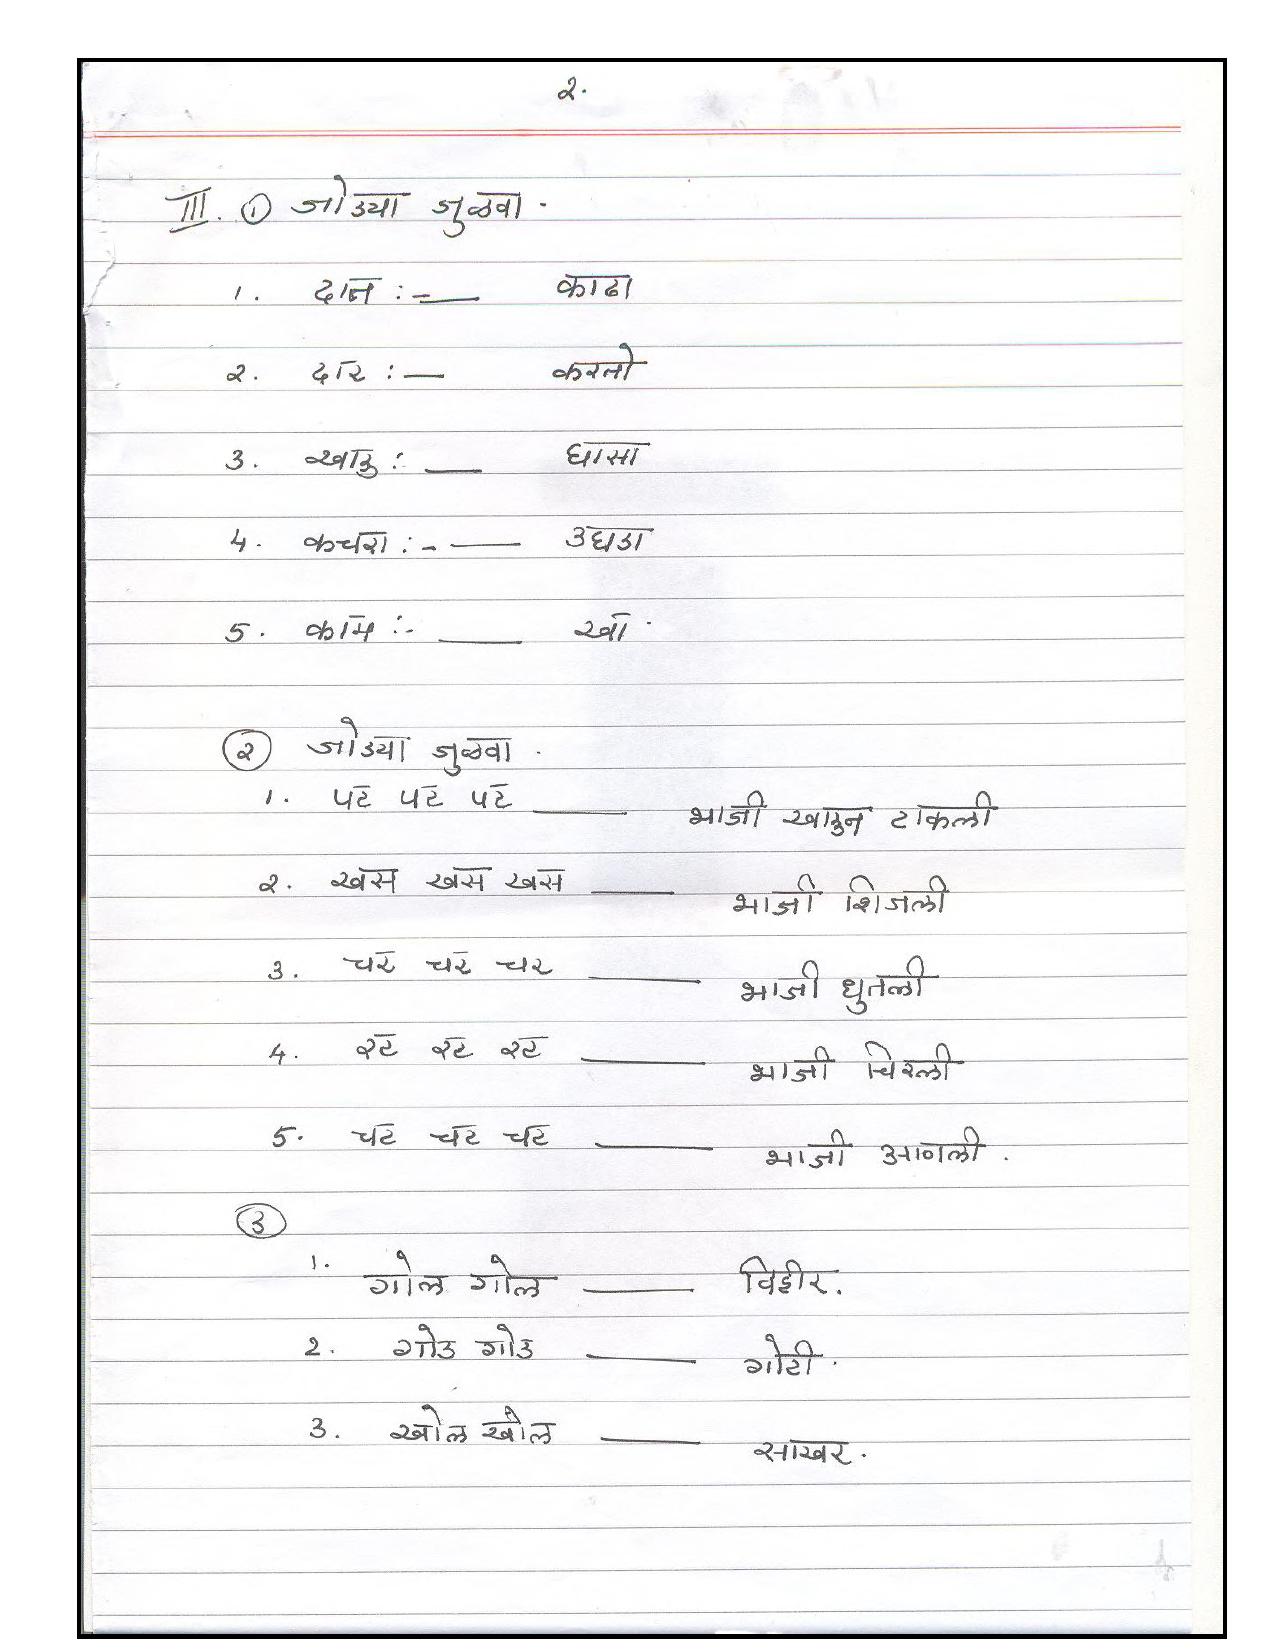 २.
III. ① जोड्या जुळवा.
१. दात :- —— काढा
२. दार :— करतो
3. खाऊ :- —— घासा
4. कचरा :- —— उघडा
5. काम :- —— खा.
② जोड्या जुळवा.
१. पट पट पट —— भाजी खाऊन टाकली
२. खस खस खस —— भाजी शिजली
3. चर चर चर —— भाजी धुतली
4. रट रट रट —— भाजी चिरली
5. चट चट चट —— भाजी आणली.
③
१. गोल गोल —— विहीर.
२. गोड गोड —— गोटी.
3. खोल खोल —— साखर.